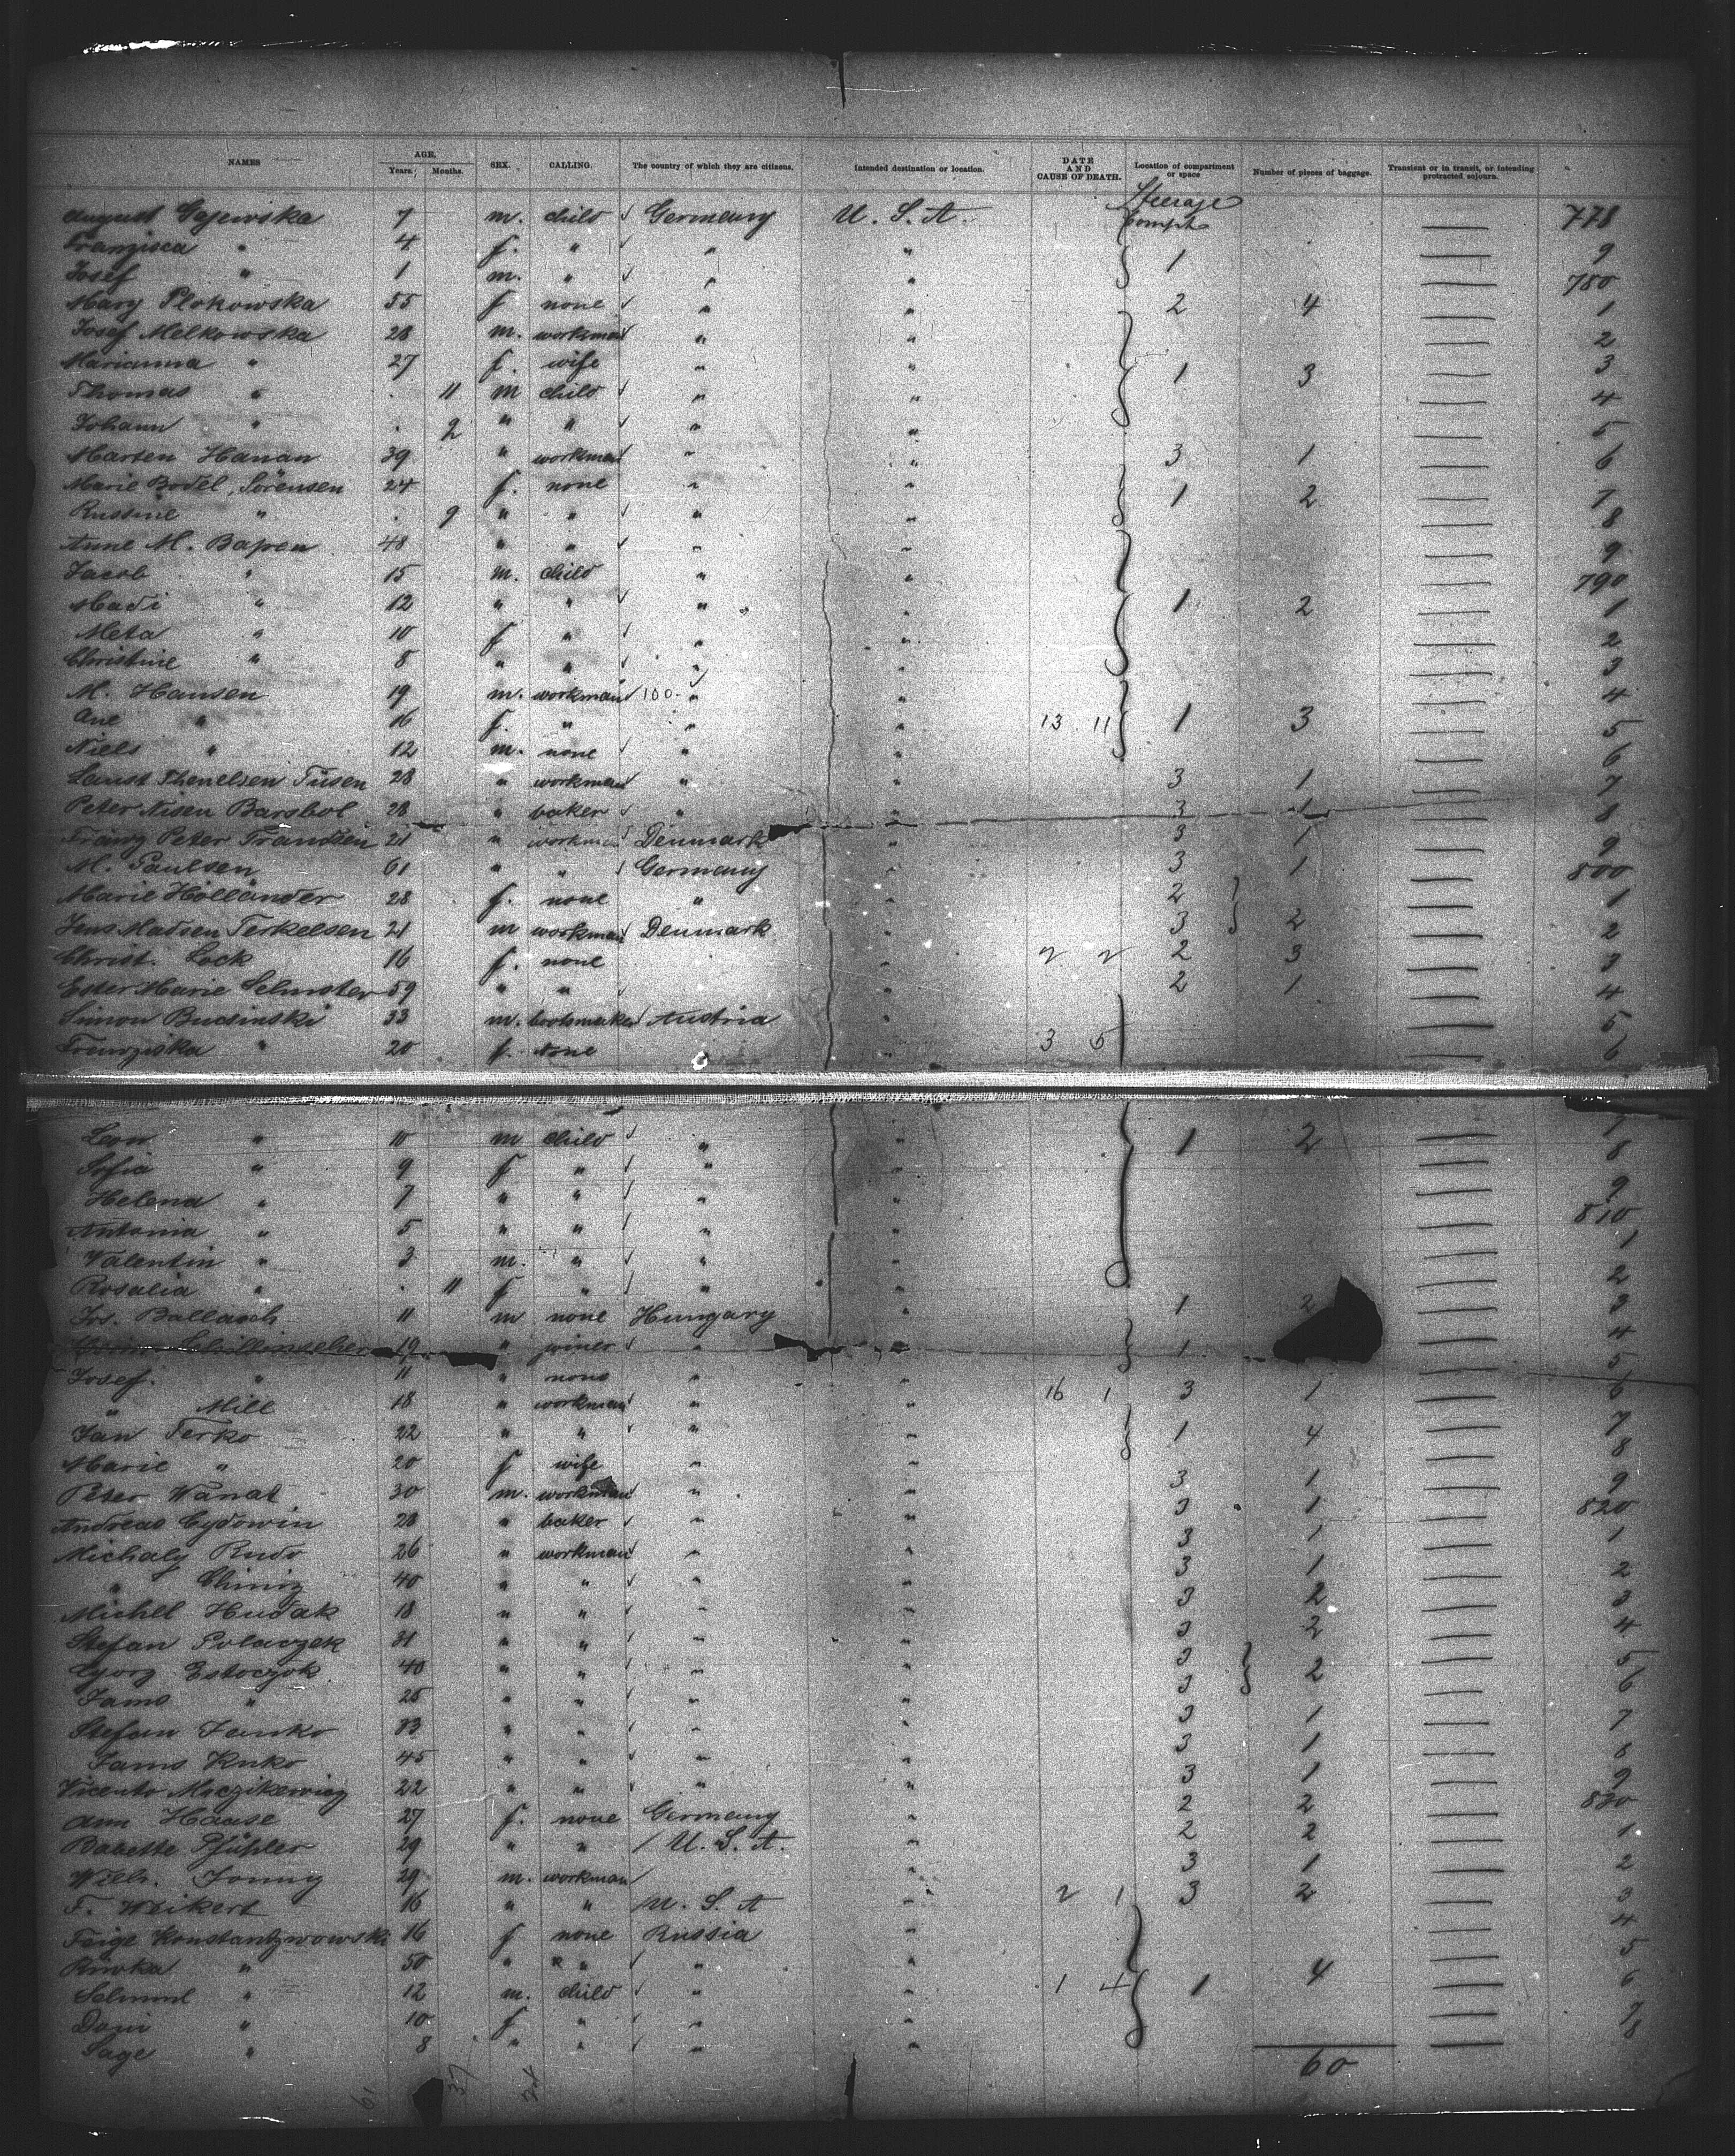 NAMES AGE, Years. Months. SEX. CALLING. The country of which they are citizens. Intended destination or location. DATE AND CAUSE OF DEATH. Location of compartment or space Number of pieces of baggage. Transient or in transit, or intending protracted sojourn.
Steerage
August Gajewska 7 m. child Germany U. S. A. Compt 778
Franzisca " 4 f. " " " 9
Josef " 1 m. " " " 1 780
Mary Plokowska 55 f none " " 2 4 1
Josef Melkowska 28 m. workman " " 2
Marianna " 27 f. wife " " 1 3 3
Thomas " . 11 m child " " 4
Johann " . 2 " " " " 5
Marten Hanan 39 " workman " " 3 1 6
Marie Bodel Sörensen 24 f. none " " 1 2 7
Russine " . 9 " " " " 8
Anne M. Bapen 48 " " " " 9
Jacob " 15 m. child " " 790
Madi " 12 " " " " 1 2 1
Meta " 10 f " " " 2
Christine " 8 " " " " 3
M. Hansen 19 m. workman 100 " " 4
Ane " 16 f. " " " 13 11 1 3 5
Niels " 12 m. none " " 6
Laust Thenelsen Tüsen 28 " workman " " 3 1 7
Peter Nisen Barsbol 28 " baker " " 3 1 8
Franz Peter Trandsen 21 " workman Denmark " 3 1 9
M. Paulsen 61 " " Germany " 3 1 800
Marie Holländer 28 f. none " " 2 1
Jens Madsen Terkelsen 21 m workman Denmark " 3 2 2
Christ. Lock 16 f. none " 2 2 2 3 3
Ester Marie Schuster 59 " " " 2 1 4
Simon Budinski 33 m. bootsmaker Austria " 5
Franziska " 20 f. none " 3 5 6
Leon " 10 m child " " 1 2 7
Sofia " 9 f " " " 8
Helena " 7 " " " " 9
Antonia " 5 " " " " 810
Valentin " 3 m. " " " 1
Rosalia " . 11 f " " " 2
Jos. Ballasch 11 m none Hungary " 1 2 3
19 " joiner " " 1 4
Josef. " 11 " none " " 5
" Mill 18 " workman " " 16 1 3 1 6
Jan Terko 22 " " " " 1 4 7
Marie " 20 f wife " " 8
Peter Wanat 30 m. workman " " 3 1 9
Andreas Cydowin 28 " baker " " 3 1 820
Michaly Rudo 26 " workman " " 3 1 1
" 40 " " " " 3 1 2
Michel Hudak 18 " " " " 3 2 3
Stefan Polaczek 31 " " " " 3 2 4
Györg Estoczok 40 " " " " 3 5
Jamo " 25 " " " " 3 2 6
Stefan Janko " " " " 3 1 7
Jamo Knko 45 " " " " 3 1 8
Vicento Maczikewicz 22 " " " " 3 1 9
Ann Hause 27 f. none Germany " 2 2 830
Babette Pfühler 29 " " U. S. A. " 2 2 1
Wilh. Jonny 29 m. workman " 3 1 2
F. Weikert 16 " " U. S. A " 2 1 3 2 3
Feige Konstantzwowski 16 f none Russia " 4
Riwka " 50 " " " " 5
Schmul " 12 m. child " " 1 4 1 4 6
Dani " 10 f " " " 7
Sage " 8 " " " " 8
60
61 37 24